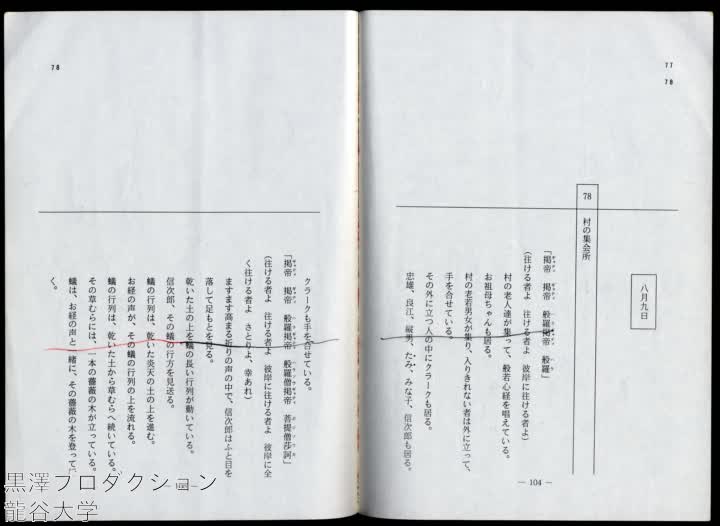 77
78
八月九日
78 村の集会所
「掲帝 掲帝 般羅掲帝 般羅」
(往ける者よ 往ける者よ 彼岸に往ける者よ)
村の老人達が集って、般若心経を唱えている。
お祖母ちゃんも居る。
村の老若男女が集り、入りきれない者は外に立って、
手を合せている。
その外に立つ人の中にクラークも居る。
忠雄、良江、縦男、たみ、みな子、信次郎も居る。
— 104 —
78
クラークも手を合せている。
「掲帝 掲帝 般羅掲帝 般羅僧掲帝 菩提僧莎訶」
(往ける者よ 往ける者よ 彼岸に往ける者よ 彼岸に全
く往ける者よ さとりよ、幸あれ)
ますます高まる祈りの声の中で、信次郎はふと目を
落して足もとを見る。
乾いた土の上を蟻の長い行列が動いている。
信次郎、その蟻の行方を見送る。
蟻の行列は、乾いた炎天の土の上を進む。
お経の声が、その蟻の行列の上を流れる。
蟻の行列は、乾いた土から草むらへ続いている。
その草むらには、一本の薔薇の木が立っている。
蟻は、お経の声と一緒に、その薔薇の木を登って
く。
黒澤プロダクション
龍谷大学